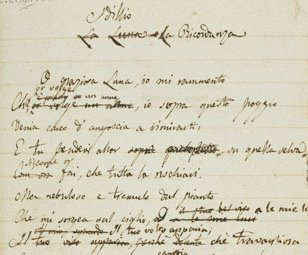 Idillio
La Luna o la Ricordanza
O graziosa Luna, io mi rammento
Che, or volge un anno, io sopra questo poggio
Venia carco d'angoscia a rimirarti:
E tu pendevi allor su quella selva
siccome or
fai, che tutta la rischiari.
Ma nebuloso e tremulo dal pianto
il tuo bel viso a le mie l
Che mi sorgea sul ciglio, a le mie luci
Il tuo volto apparia,
Il tuo viso apparia, perchè che travagliosa